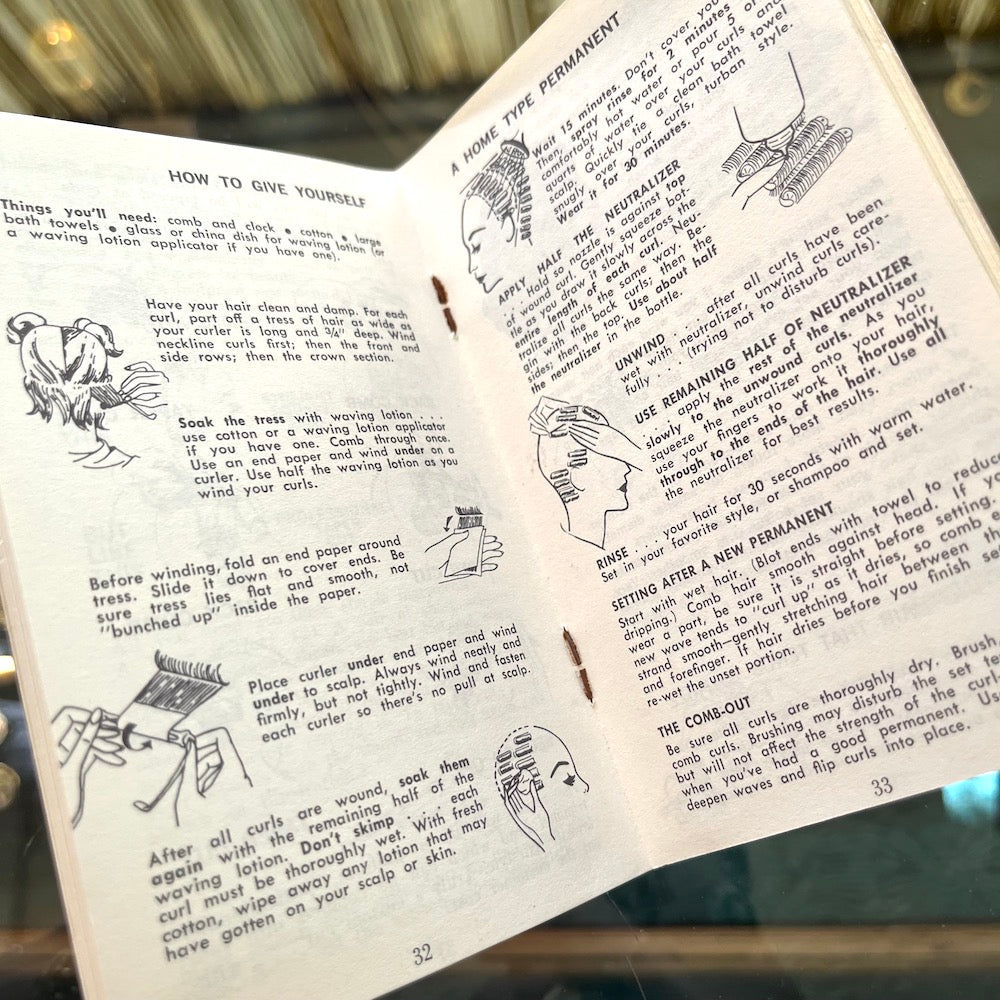 HOW TO GIVE YOURSELF
Things you'll need: comb and clock • cotton • large
bath towels • glass or china dish for waving lotion (or
a waving lotion applicator if you have one).
Have your hair clean and damp. For each
curl, part off a tress of hair as wide as
your curler is long and 3/4" deep. Wind
neckline curls first; then the front and
side rows; then the crown section.
Soak the tress with waving lotion . . .
use cotton or a waving lotion applicator
if you have one. Comb through once.
Use an end paper and wind under on a
curler. Use half the waving lotion as you
wind your curls.
Before winding, fold an end paper around
tress. Slide it down to cover ends. Be
sure tress lies flat and smooth, not
"bunched up" inside the paper.
Place curler under end paper and wind
under to scalp. Always wind neatly and
firmly, but not tightly. Wind and fasten
each curler so there's no pull at scalp.
After all curls are wound, soak them
again with the remaining half of the
waving lotion. Don't skimp . . . each
curl must be thoroughly wet. With fresh
cotton, wipe away any lotion that may
have gotten on your scalp or skin.
32
A HOME TYPE PERMANENT
Wait 15 minutes. Don't cover
Then, spray rinse for 2 minutes
comfortably hot water or pour 5 or
quarts of water over your curls and
scalp. Quickly tie a clean bath towel
snugly over your curls, turban style.
Wear it for 30 minutes.
APPLY HALF THE NEUTRALIZER
. . . Hold so nozzle is against top
of wound curl. Gently squeeze bot-
tle as you draw it slowly across the
entire length of each curl. Neu-
tralize all curls the same way. Be-
gin with the back curls; then the
sides; then the top. Use about half
the neutralizer in the bottle.
UNWIND . . . after all curls have been
wet with neutralizer, unwind curls care-
fully . . . (trying not to disturb curls).
USE REMAINING HALF OF NEUTRALIZER
. . . apply the rest of the neutralizer
slowly to the unwound curls. As you
squeeze the neutralizer onto your hair,
use your fingers to work it thoroughly
through to the ends of the hair. Use all
the neutralizer for best results.
RINSE . . . your hair for 30 seconds with warm water.
Set in your favorite style, or shampoo and set.
SETTING AFTER A NEW PERMANENT
Start with wet hair. (Blot ends with towel to reduce
dripping.) Comb hair smooth against head. If you
wear a part, be sure it is straight before setting.
new wave tends to "curl up" as it dries, so comb
strand smooth—gently stretching hair between
and forefinger. If hair dries before you finish
re-wet the unset portion.
THE COMB-OUT
Be sure all curls are thoroughly dry. Brush,
comb curls. Brushing may disturb the set
but will not affect the strength of the curl
when you've had a good permanent.
deepen waves and flip curls into place.
33